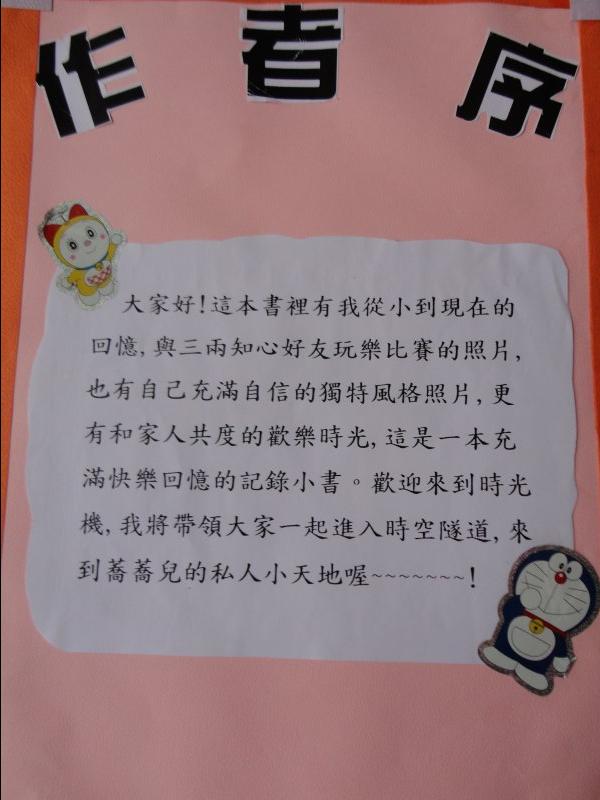 作者序
大家好!這本書裡有我從小到現在的
回憶,與三兩知心好友玩樂比賽的照片,
也有自己充滿自信的獨特風格照片,更
有和家人共度的歡樂時光,這是一本充
滿快樂回憶的記錄小書。歡迎來到時光
機,我將帶領大家一起進入時空隧道,來
到蕎蕎兒的私人小天地喔~~~~~~~!